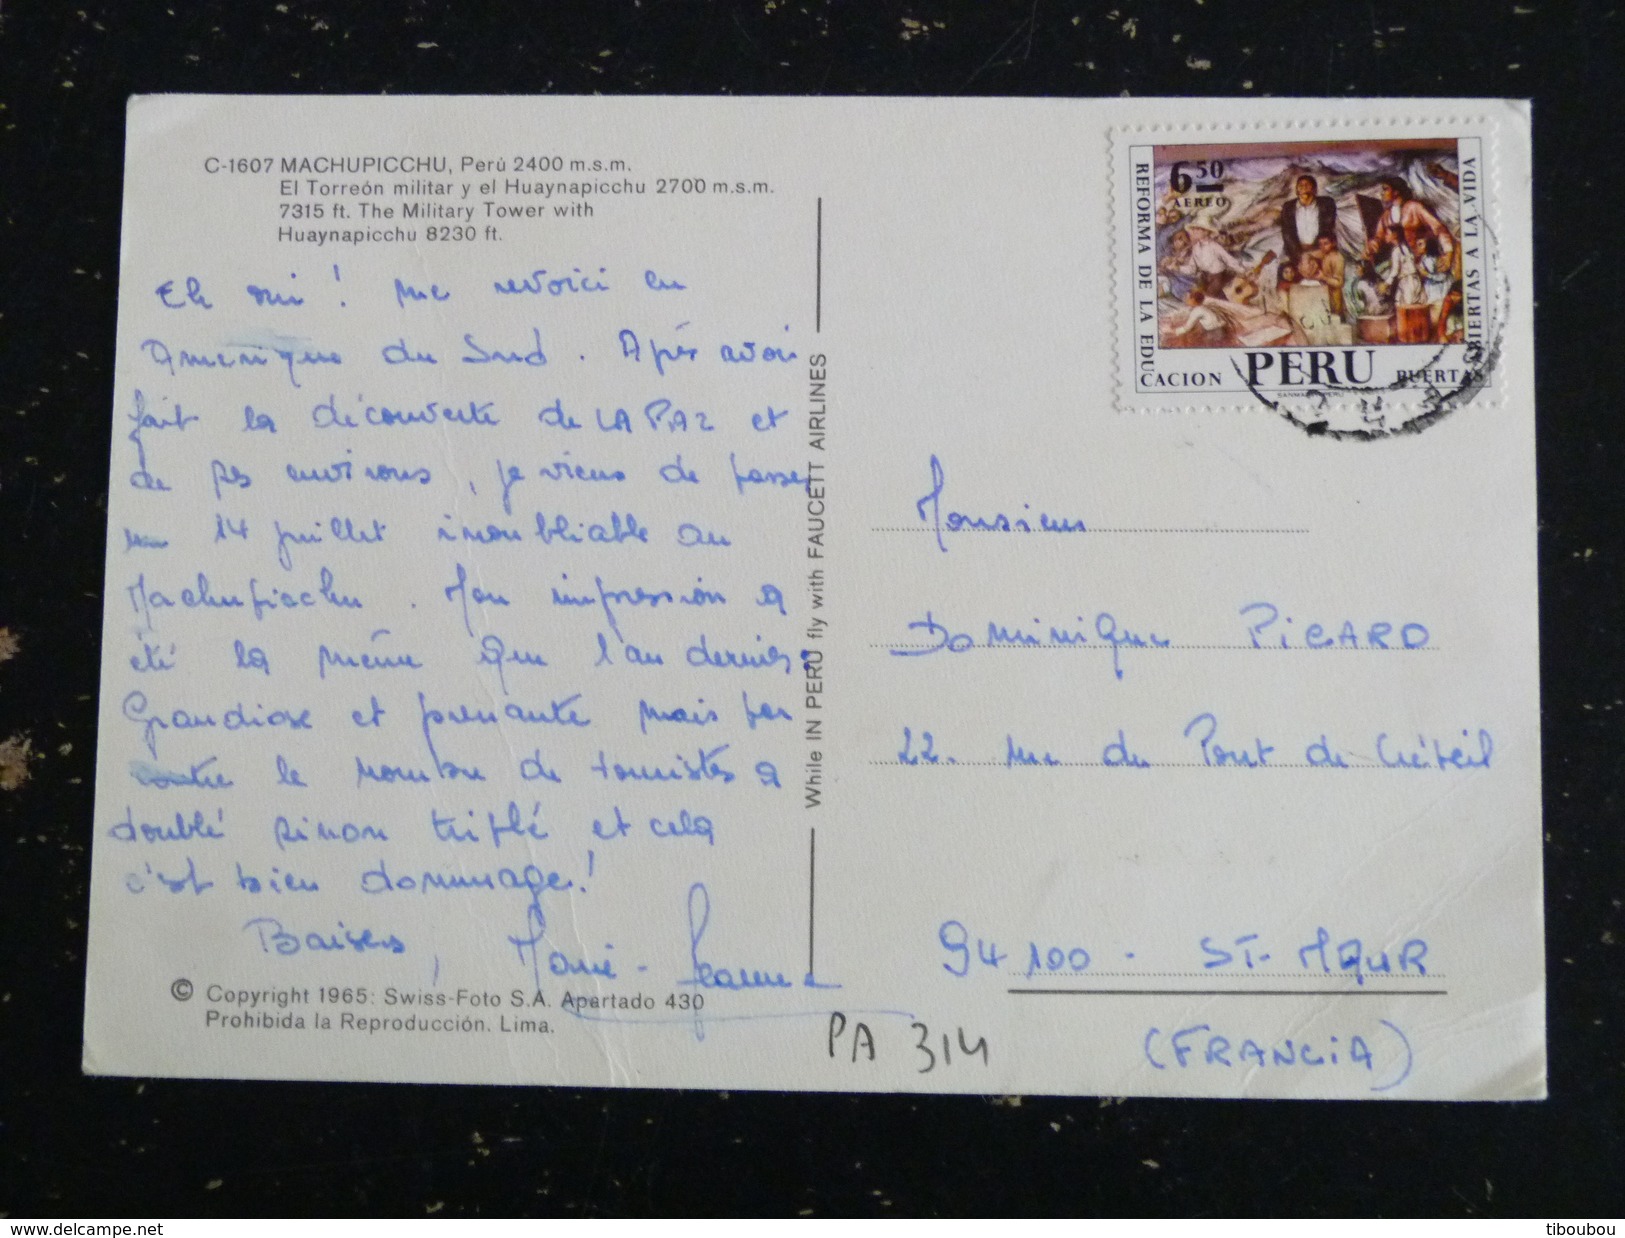 C-1607 MACHUPICCHU, Perú 2400 m.s.m.
El Torreón militar y el Huaynapicchu 2700 m.s.m.
7315 ft. The Military Tower with
Huaynapicchu 8230 ft.
Eh oui ! me revoici en
Amérique du Sud. Après avoir
fait la découverte de LA PAZ et
de ses environs, je viens de passer
un 14 juillet inoubliable au
Machupicchu. Mon impression a
été la même que l'an dernier.
Grandiose et prenante mais par
contre le nombre de touristes a
doublé sinon triplé et cela
c'est bien dommage !
Baisers, Marie-Jeanne
© Copyright 1965: Swiss-Foto S.A. Apartado 430
Prohibida la Reproducción. Lima.
While IN PERU fly with FAUCETT AIRLINES
6.50
AEREO
REFORMA DE LA EDUCACION
PERU
PUERTAS ABIERTAS A LA VIDA
Monsieur
Dominique PICARD
22. rue du Pont de Créteil
94100 - ST-MAUR
(FRANCIA)
PA 314
tiboubou